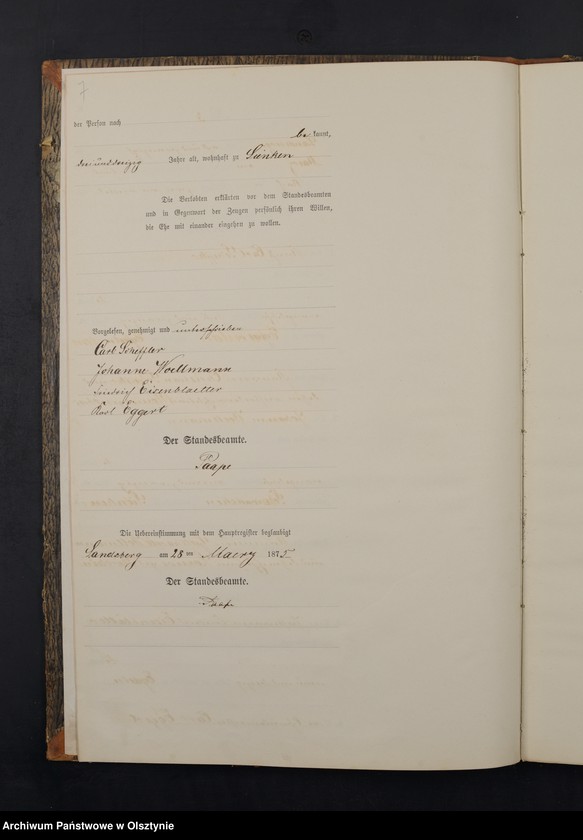 7
der Person nach
be kannt,
dreiunddreizig Jahre alt, wohnhaft zu Sienken
Die Verlobten erklärten vor dem Standesbeamten
und in Gegenwart der Zeugen persönlich ihren Willen,
die Ehe mit einander eingehen zu wollen.
Vorgelesen, genehmigt und unterschrieben
Carl Scheffler
Johanne Woellmann
Friedrich Eisenblaetter
Karl Eggert
Der Standesbeamte.
Paape
Die Uebereinstimmung mit dem Hauptregister beglaubigt
Landsberg am 28 ten Maerz 1875
Der Standesbeamte.
Paape
Archiwum Państwowe w Olsztynie